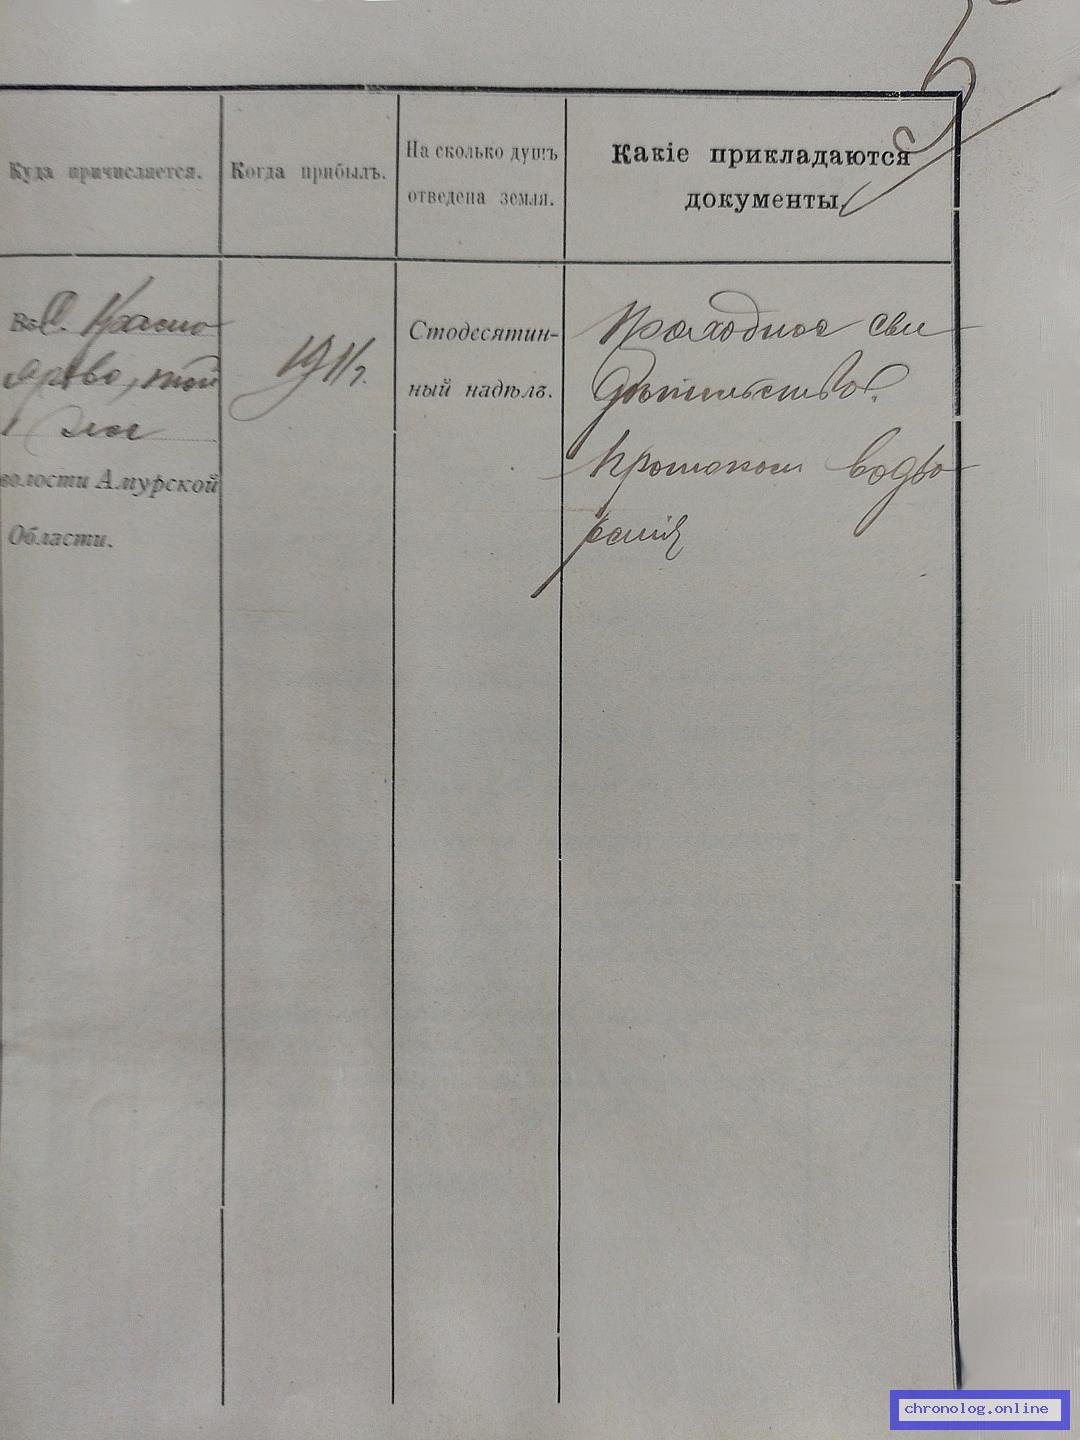 5
Куда причисляется.
Когда прибылъ.
На сколько душъ
отведена земля.
Какіе прикладаются
документы.
Въ С. Красно
ярово, той
же
волости Амурской
Области.
1911 г.
Стодесятин-
ный надѣлъ.
Проходное сви
дѣтельство.
Протокол водво
ренія
chronolog.online